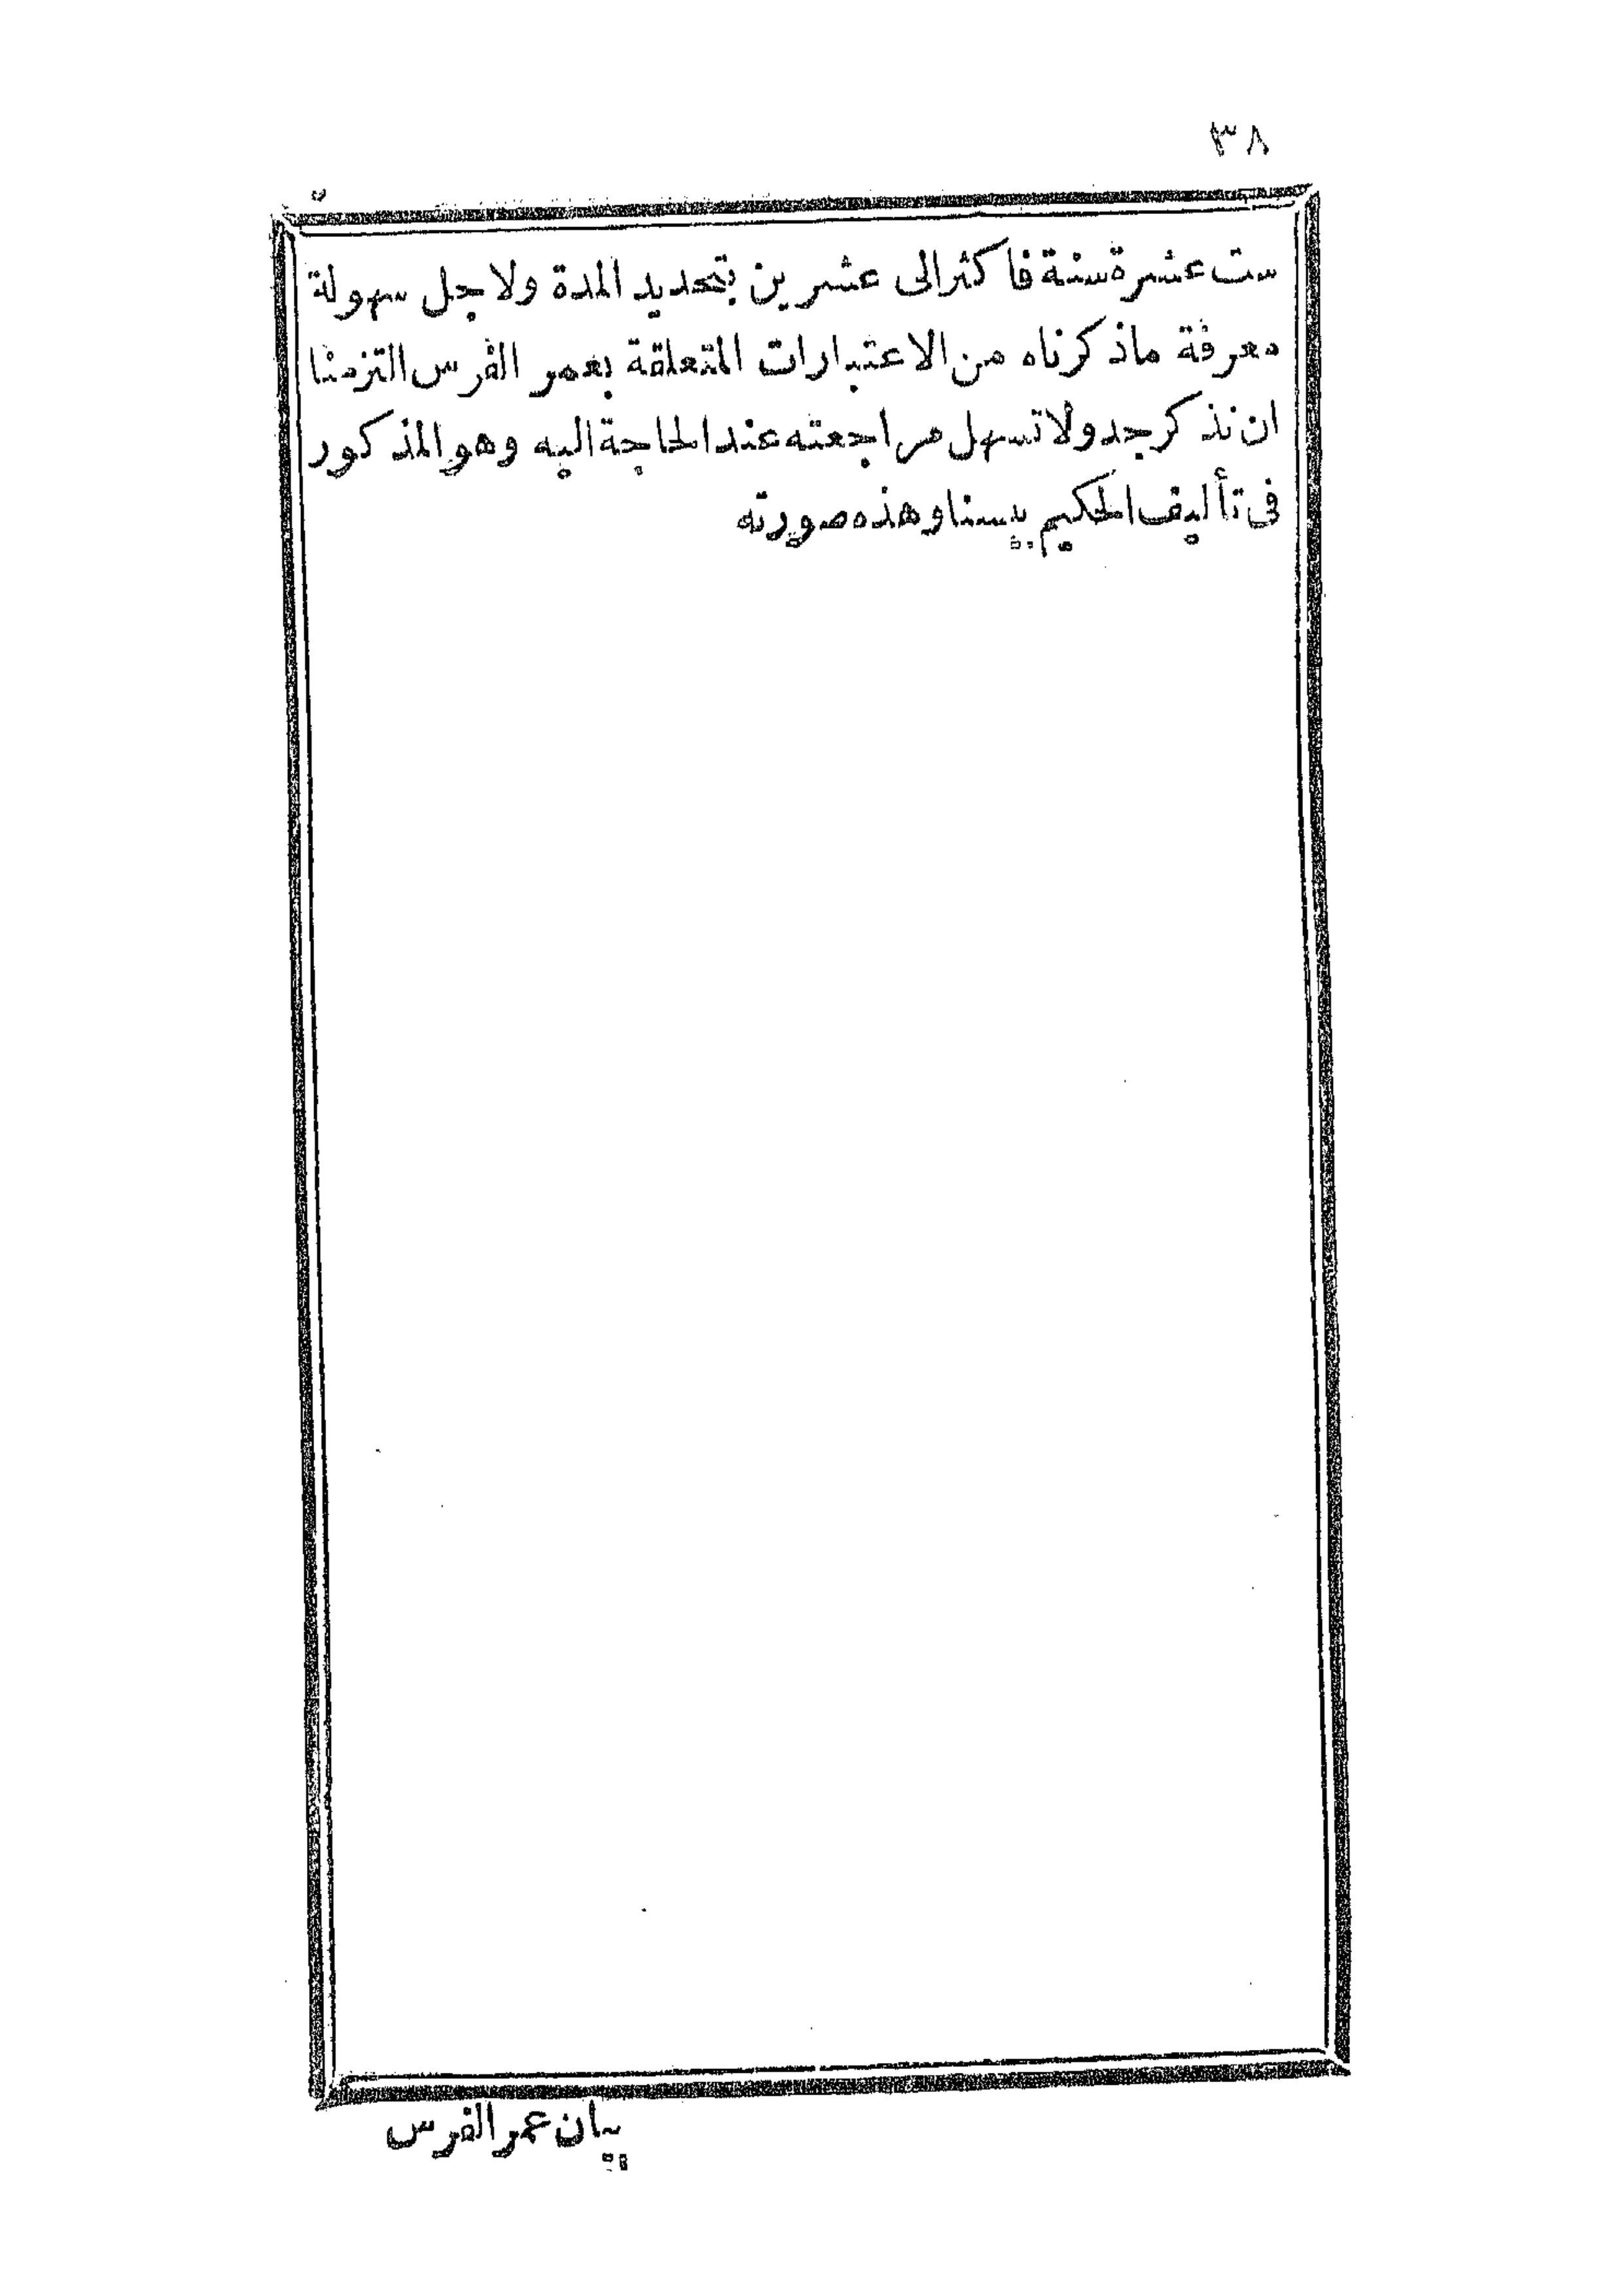 ٣٨
ست عشرة سنة فاكثر الى عشرين بتحديد المدة ولاجل سهولة
معرفة ماذكرناه من الاعتبارات المتعلقة بعمر الفرس التزمنا
ان نذكر جدولا تسهل مراجعته عند الحاجة اليه وهو المذكور
فى تأليف الحكيم بيسنا وهذه صورته
بيان عمر الفرس